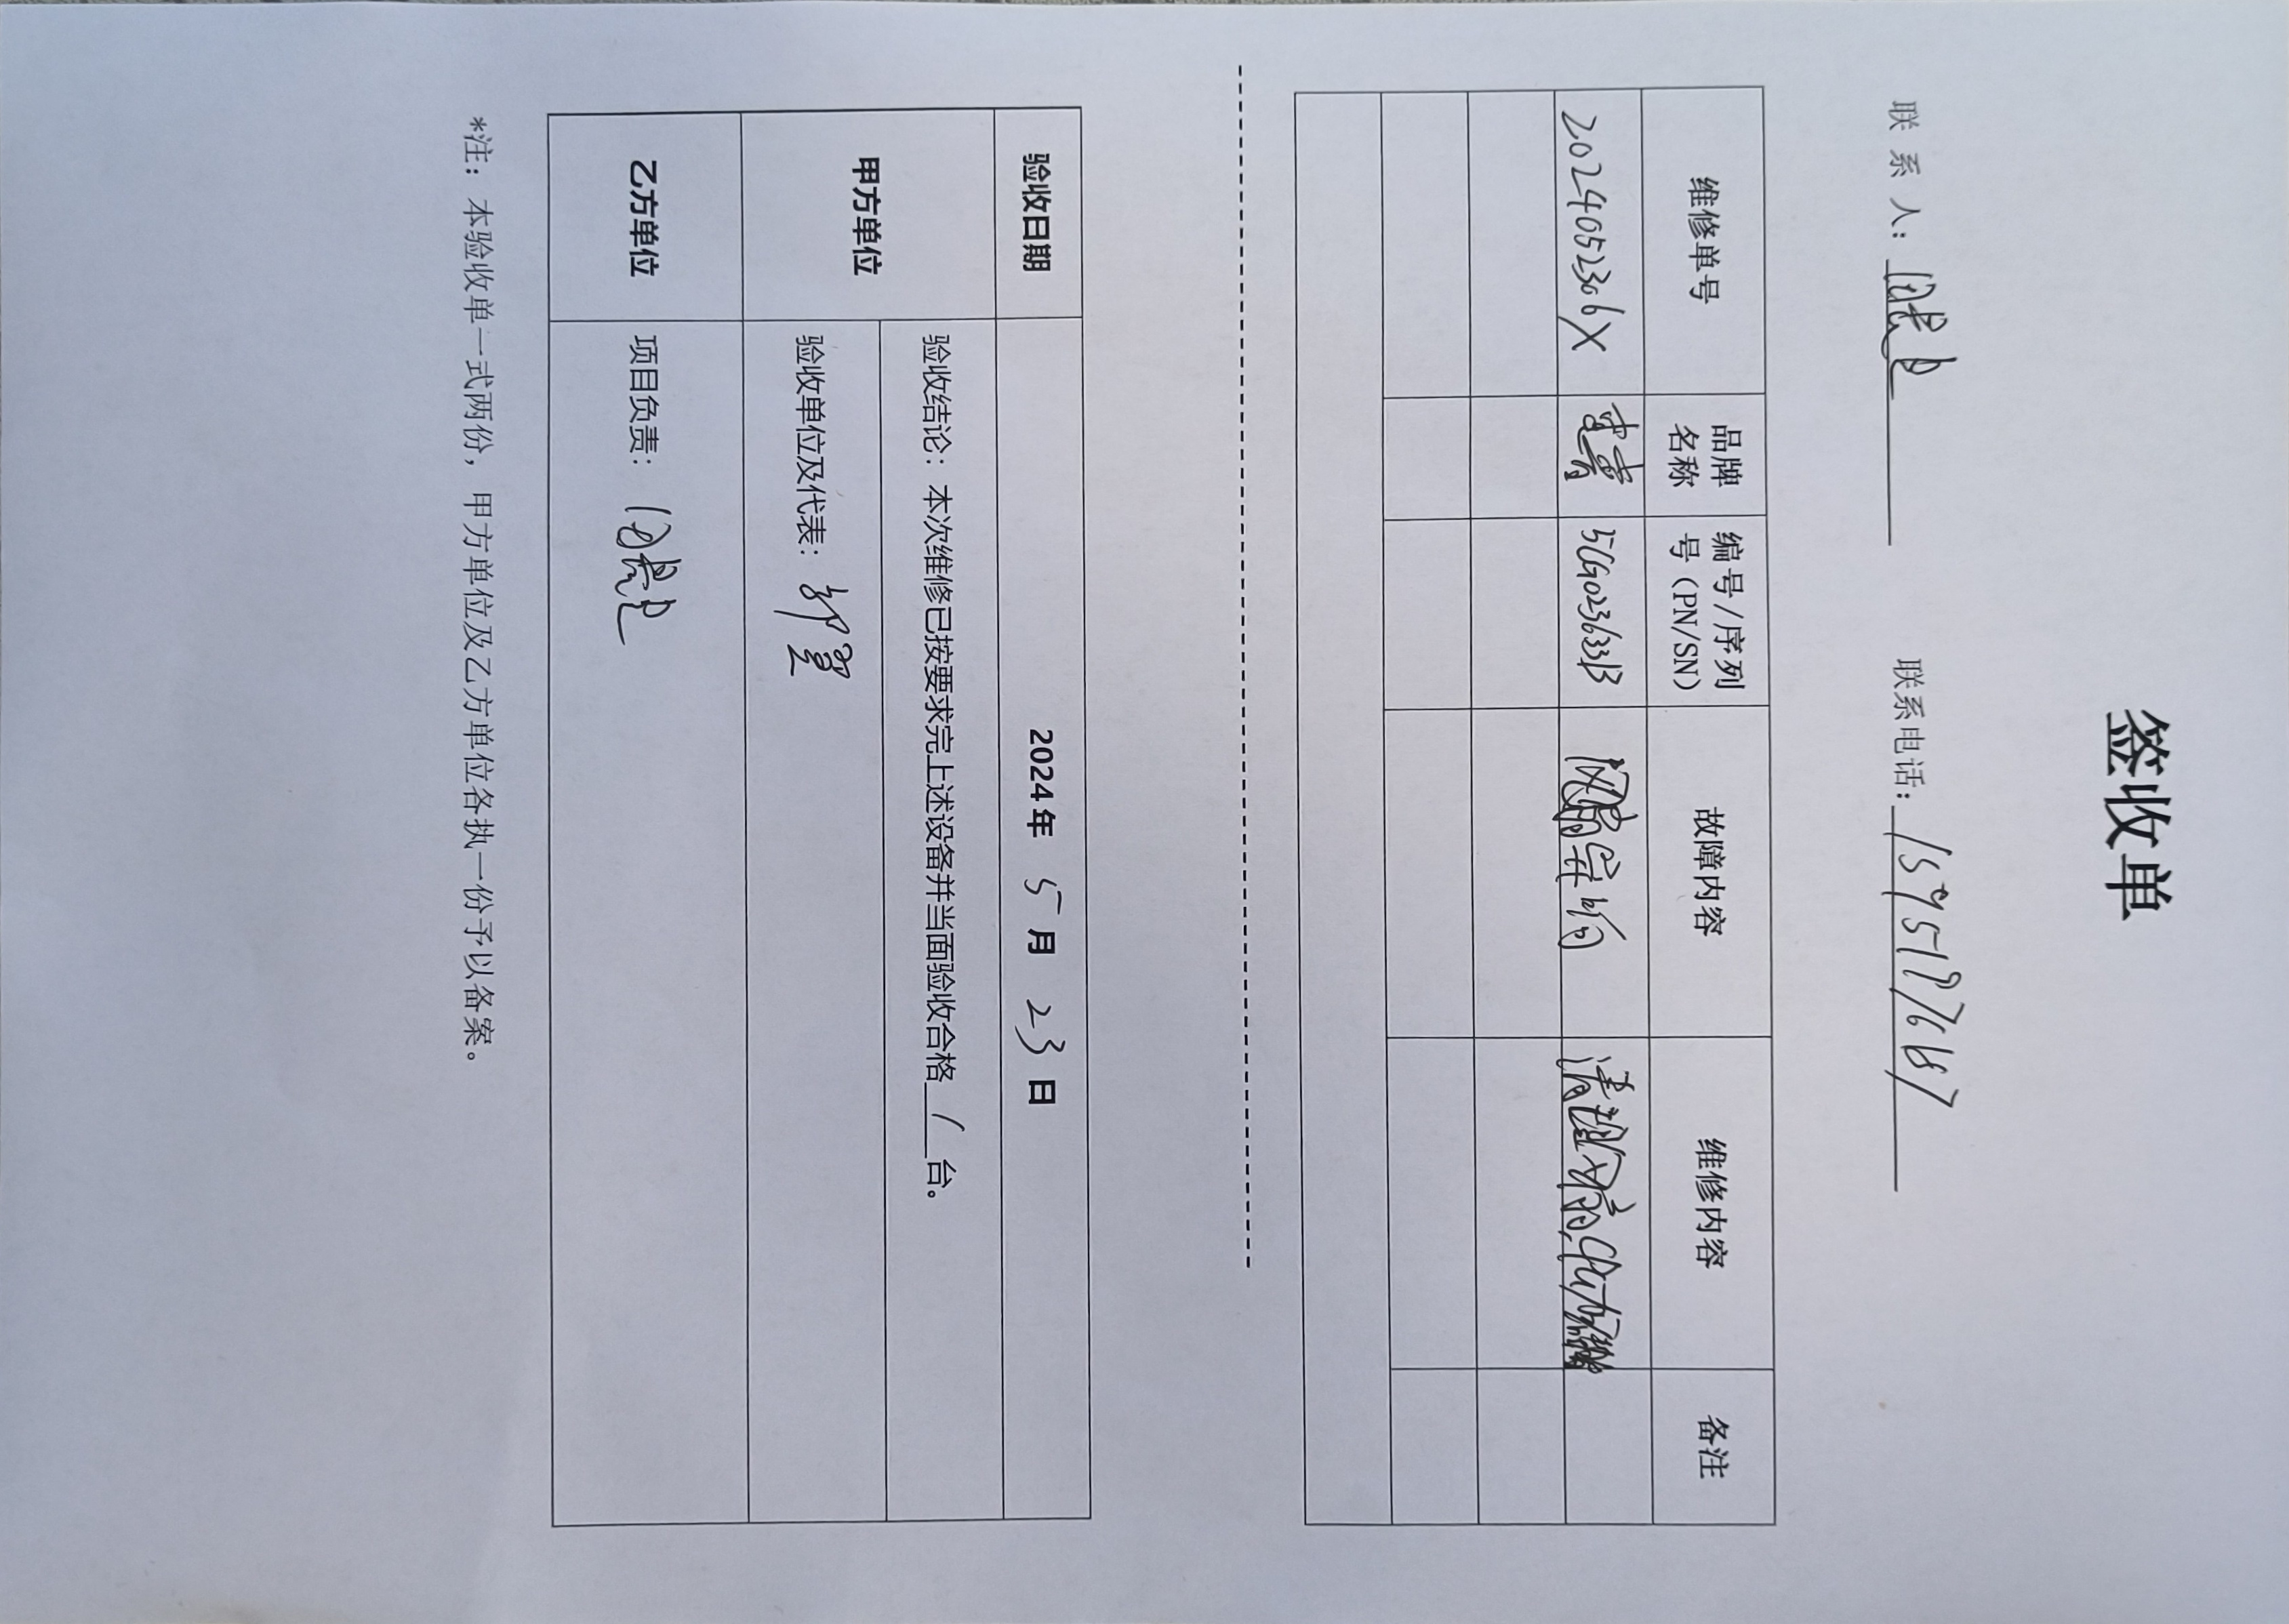 签收单
联 系 人： 联系电话：15951976187
维修单号 品牌名称 编号/序列号（PN/SN） 故障内容 维修内容 备注
2024052306X 惠普 5CG023633B 风扇异响 清理风扇、CPU加硅脂
验收日期 2024年 5 月 23 日
甲方单位 验收结论：本次维修已按要求完上述设备并当面验收合格 1 台。
验收单位及代表：郭翌
乙方单位 项目负责：
*注：本验收单一式两份，甲方单位及乙方单位各执一份予以备案。